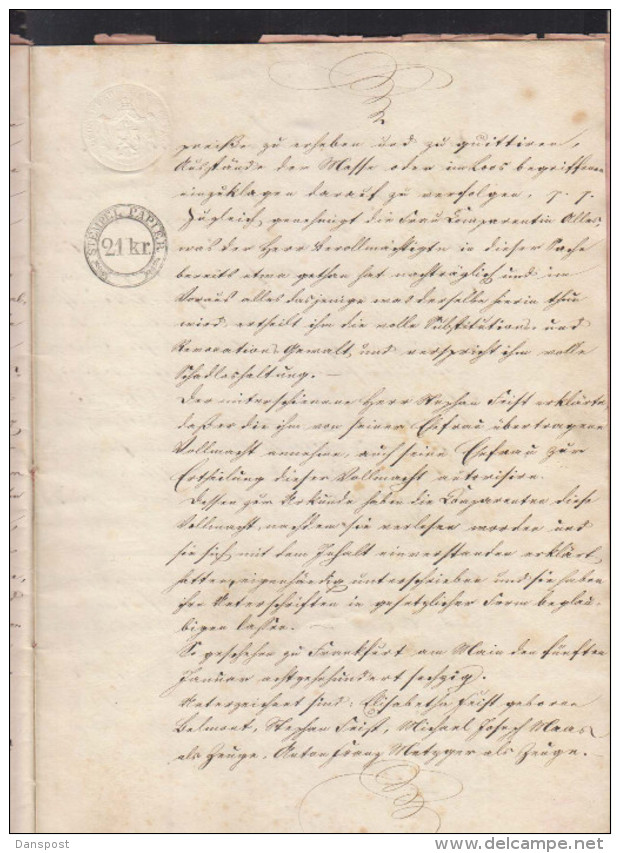 STEMPEL PAPIER
21 kr.
preiße zu erheben und zu quittiren,
Ausstände der Masse oder im Loos begriffenen
einzuklagen darauf zu verfolgen, p. p.
Zugleich genehmigt die Frau Comparentin Alles,
was der Herr Bevollmächtigte in dieser Sache
bereits etwa gethan hat nachträglich und im
Voraus alles dasjenige was derselbe hierin thun
wird, ertheilt ihm die volle Substitutions- und
Revocations Gewalt, und verspricht ihm volle
Schadloshaltung. —
Der miterschienene Herr Stephan Feist erklärte,
daß er die ihm von seiner Ehefrau übertragene
Vollmacht annehme, auch seine Ehefrau zur
Ertheilung dieser Vollmacht autorisire.
Dessen zur Urkunde haben die Comparenten diese
Vollmacht, nachdem sie verlesen worden und
sie sich mit dem Inhalt einverstanden erklärt
hatten, eigenhändig unterschrieben und sie haben
ihre Unterschriften in gesetzlicher Form beglau-
bigen lassen. —
So geschehen zu Frankfurt am Main den fünften
Januar achtzehnhundert sechzig.
Unterzeichnet sind: Elisabetha Feist geborene
Belmont, Stephan Feist, Michael Joseph Maas
als Zeuge, Anton Franz Metzger als Zeuge. —
Danspost
www.delcampe.net